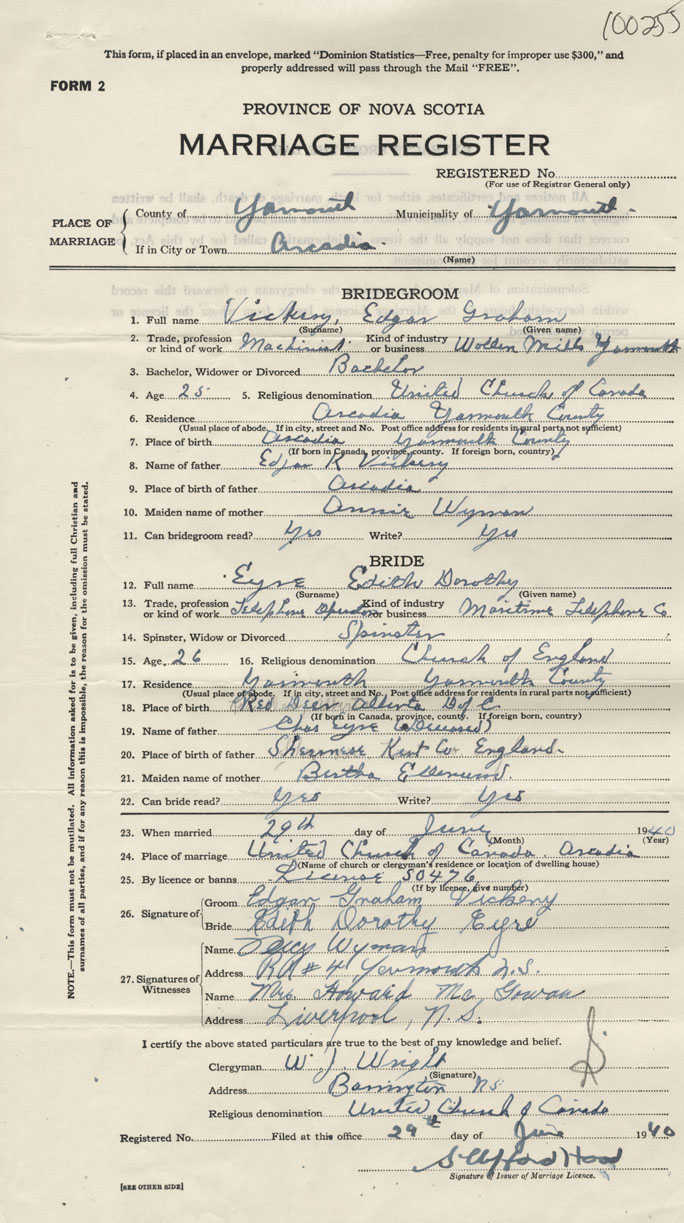 100255
This form, if placed in an envelope, marked "Dominion Statistics—Free, penalty for improper use $300," and
properly addressed will pass through the Mail "FREE".
FORM 2
PROVINCE OF NOVA SCOTIA
MARRIAGE REGISTER
REGISTERED No.
(For use of Registrar General only)
PLACE OF MARRIAGE
County of Yarmouth Municipality of Yarmouth
If in City or Town Arcadia
(Name)
BRIDEGROOM
1. Full name Vickery, Edgar Graham
(Surname) (Given name)
2. Trade, profession or kind of work Machinist Kind of industry or business Wollen Mills Yarmouth
3. Bachelor, Widower or Divorced Bachelor
4. Age 25 5. Religious denomination United Church of Canada
6. Residence Arcadia Yarmouth County
(Usual place of abode. If in city, street and No. Post office address for residents in rural parts not sufficient)
7. Place of birth Arcadia Yarmouth County
(If born in Canada, province, county. If foreign born, country)
8. Name of father Edgar R Vickery
9. Place of birth of father Arcadia
10. Maiden name of mother Annie Wyman
11. Can bridegroom read? Yes Write? Yes
BRIDE
12. Full name Eyre Edith Dorothy
(Surname) (Given name)
13. Trade, profession or kind of work Telephone Operator Kind of industry or business Maritime Telephone Co
14. Spinster, Widow or Divorced Spinster
15. Age 26 16. Religious denomination Church of England
17. Residence Yarmouth Yarmouth County
(Usual place of abode. If in city, street and No. Post office address for residents in rural parts not sufficient)
18. Place of birth Red Deer Alberta D of C
(If born in Canada, province, county. If foreign born, country)
19. Name of father Chas Eyre (Deceased)
20. Place of birth of father Sheerness Kent Co England
21. Maiden name of mother Bertha
22. Can bride read? Yes Write? Yes
23. When married 29th day of June 1940
(Month) (Year)
24. Place of marriage United Church of Canada, Arcadia
(Name of church or clergyman's residence or location of dwelling house)
25. By licence or banns License 50476
(If by licence, give number)
26. Signature of
Groom Edgar Graham Vickery
Bride Edith Dorothy Eyre
27. Signatures of Witnesses
Name Percy Wyman
Address RR #4 Yarmouth N.S.
Name Mrs. Howard Mc Gowan
Address Liverpool, N.S.
I certify the above stated particulars are true to the best of my knowledge and belief.
Clergyman W. J. Wright
(Signature)
Address Barrington NS
Religious denomination United Church of Canada
Registered No. Filed at this office 29th day of June 1940
Hood
Signature of Issuer of Marriage Licence.
[SEE OTHER SIDE]
NOTE.—This form must not be mutilated. All information asked for is to be given, including full Christian and
surnames of all parties, and if for any reason this is impossible, the reason for the omission must be stated.